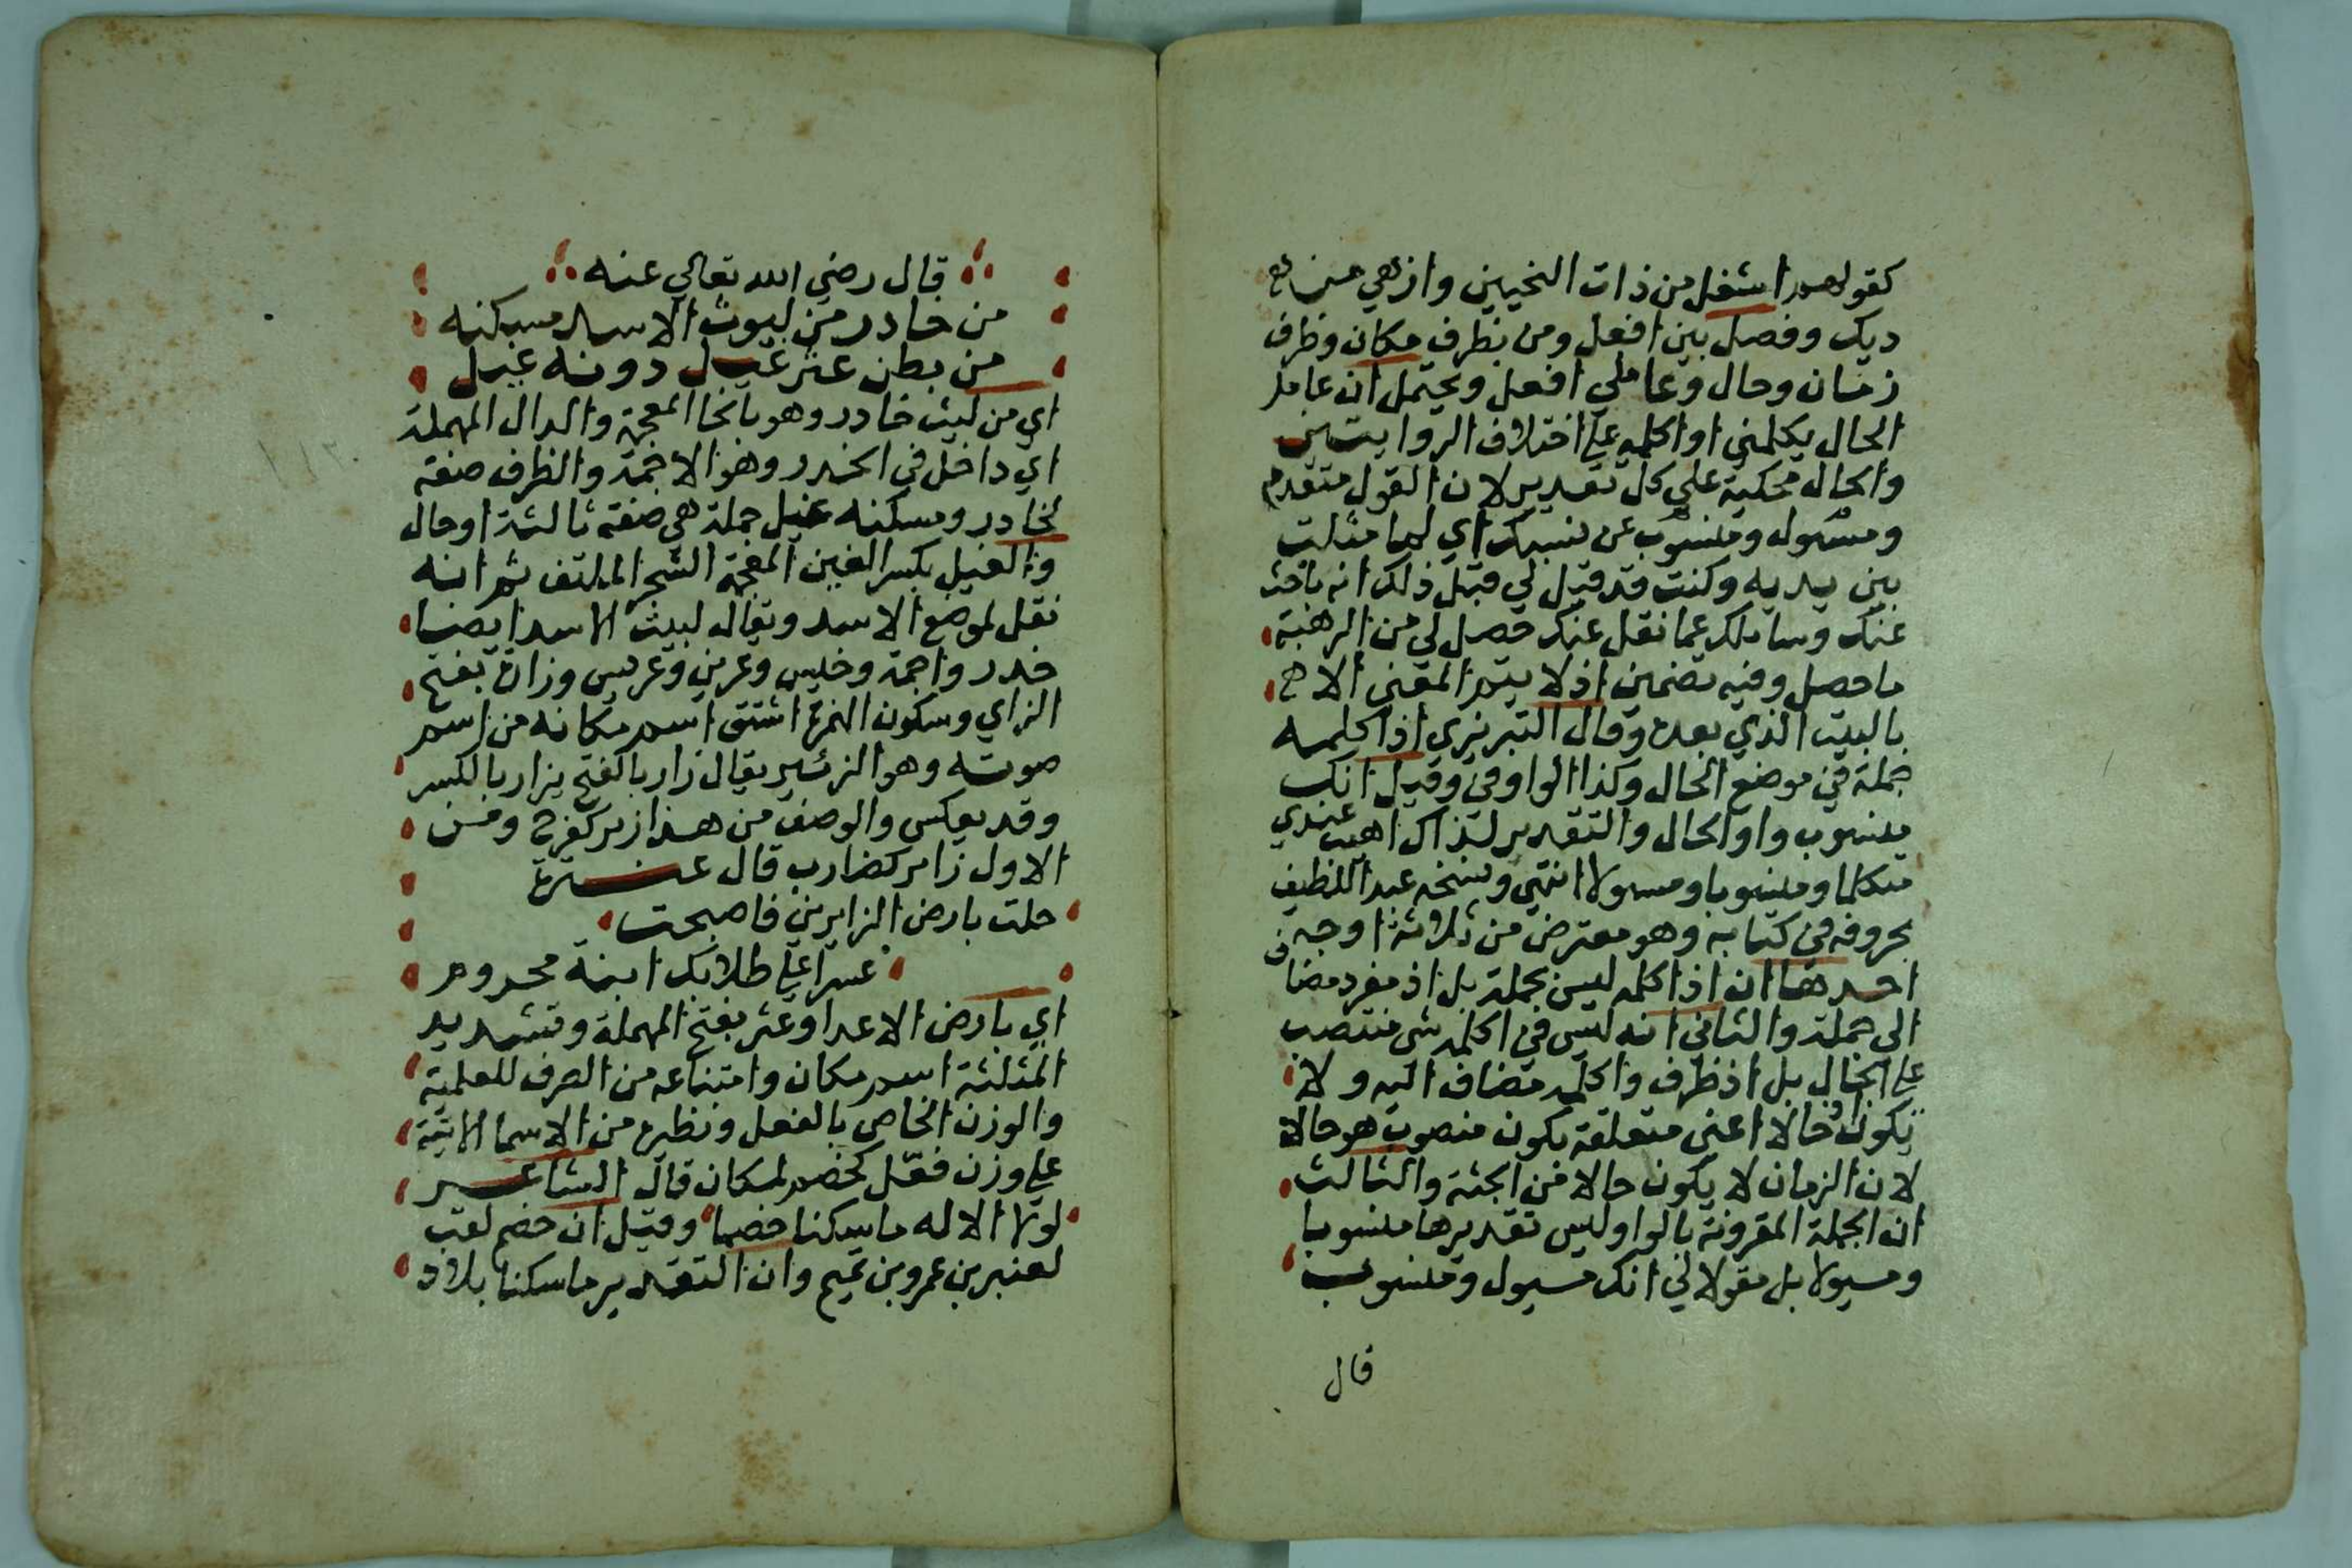 كقولهم اشغل من ذات النحيين وازهي من
ديك وفصل بين افعل ومن بظرف مكان وظرف
زمان وحال وعاملي افعل ويحتمل ان عامل
الحال يكلمني او اكلمه علي اختلاف الروايتين
والحال محكية علي كل تقدير لان القول متقدم
ومسوله ومنسوب عن نسبك اي لما مثلت
بين يديه وكنت قد قيل لي قبل ذلك انه باحث
عنك وسايلك عما نقل عنك حصل لي من الرهبة
ما حصل وفيه تضمين اذ لا يتم المعني الا
بالبيت الذي بعده وقال التبريزي اذ اكلمه
جملة في موضع الحال وكذا الواو في وقيل انك
منسوب واو الحال والتقدير لذاك اهيب عندي
متكلما ومنسوبا ومسولا انتهي ونسخه عبد اللطيف
بحروفه في كتابه وهو معترض من ثلاثة اوجه
احدها ان اذ اكلمه ليس بجملة بل اذ مفرد مضاف
الى جملة والثاني انه ليس في اكلمه شي منتصب
علي الحال بل اذ ظرف واكلمه مضاف اليه ولا
يكون حالا اعني متعلقة يكون منصوب هو حالا
لان الزمان لا يكون حالا من الجثة والثالث
ان الجملة المقرونة بالواو ليس تقديرها منسوبا
ومسيولا بل مقولا لي انك مسيول ومنسوب
قال
قال رضي الله تعالي عنه
من خادر من ليوث الاسد مسكنه
من بطن عثر غيل دونه غيل
اي من ليث خادر وهو بالخا المعجمة والدال المهملة
اي داخل في الخدر وهو الاجمة والظرف صفة
لخادر ومسكنه غيل جملة هي صفة ثالثة او حال
والغيل بكسر الغين المعجمة الشجر الملتف ثم انه
نقل لموضع الاسد ويقال لبيت الاسد ايضا
خدر واجمة وخيس وعرين وعريس وزارة بفتح
الزاي وسكون الهمزة اشتق اسم مكانه من اسم
صوته وهو الزئير يقال زار بالفتح يزار بالكسر
وقد يعكس والوصف من هذا زير كفرح ومن
الاول زاير كضارب قال عنترة
حلت بارض الزايرين فاصبحت
عسرا علي طلابك ابنة محروم
اي بارض الاعدا وعثر بفتح المهملة وتشديد
المثلثة اسم مكان وامتناعه من الصرف للعلمية
والوزن الخاص بالفعل ونظيره من الاسما الاتية
علي وزن فعّل كخضم لمكان قال الشاعر
لولا الاله ما سكنا خضما وقيل ان خضم لقب
لعنبر بن عمرو بن تميم وان التقدير ما سكنا بلاد